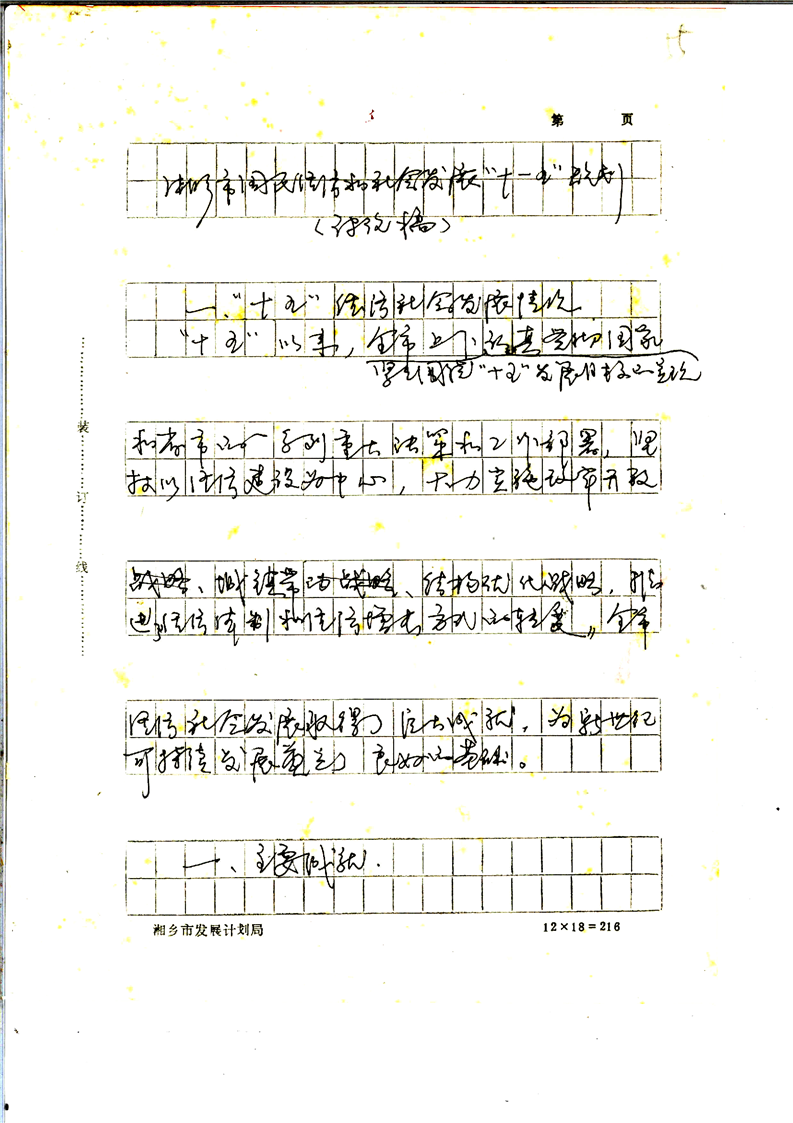 第 页
湘乡市国民经济和社会发展“十一五”规划
（讨论稿）
一、“十五”经济社会发展情况
“十五”以来，全市上下认真贯彻国家
紧紧围绕“十五”发展目标的实现
和省市的一系列重大决策和工作部署，坚
持以经济建设为中心，大力实施改革开放
战略、城镇带动战略、结构优化战略，推
进了经济体制和经济增长方式的转变，全市
经济社会发展取得了巨大成就，为新世纪
可持续发展奠定了良好的基础。
一、主要成就.
装
订
线
湘乡市发展计划局
12×18=216